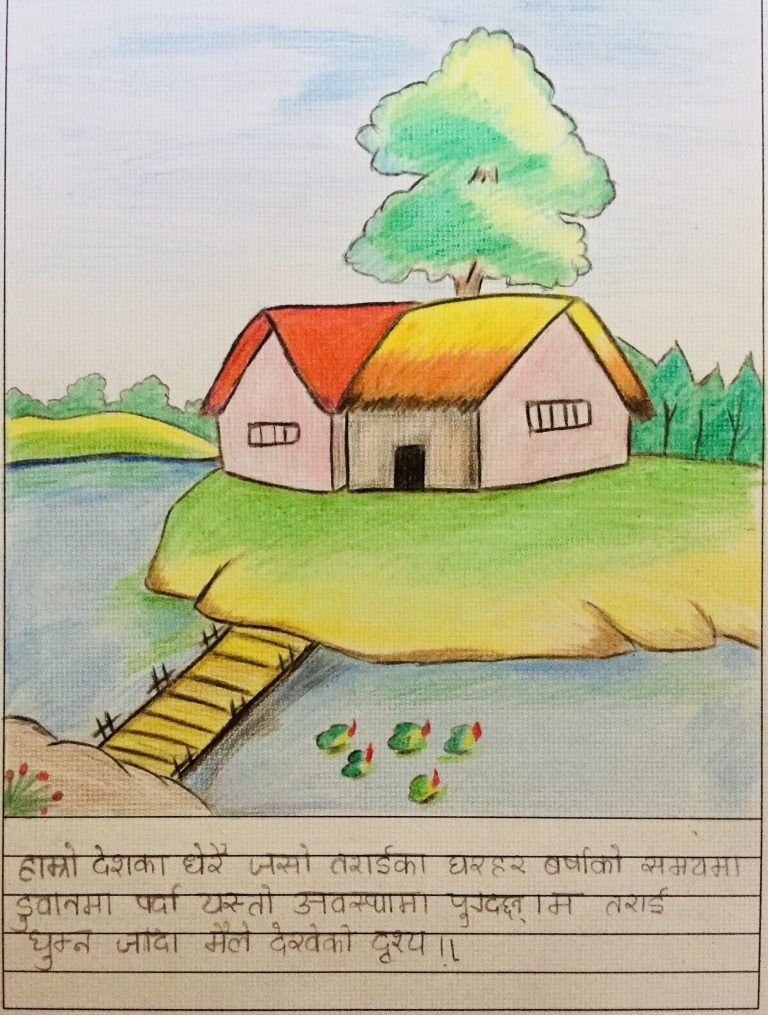 हाम्रो देशका धेरै जसो तराईका घरहर बर्षाको समयमा
डुवानमा पर्दा यस्तो अवस्थामा पुग्दछन् । म तराई
घुम्न जादा मैले देखेको दृश्य ।।